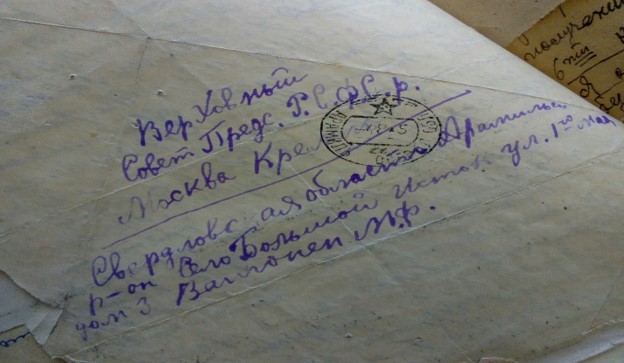 Верховный
Совет През. Р.С.Ф.С.р.
Москва Крем
Свердловская область Арамильс
р-он Село Большой Исток ул. 1го мая
дом 3 М.Ф.
получени
6
Я